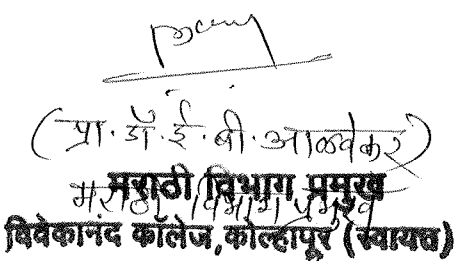 (प्रा. डॉ. ई. बी. आळवेकर)
मराठी विभाग प्रमुख
मराठी विभाग प्रमुख
विवेकानंद कॉलेज, कोल्हापूर (स्वायत्त)